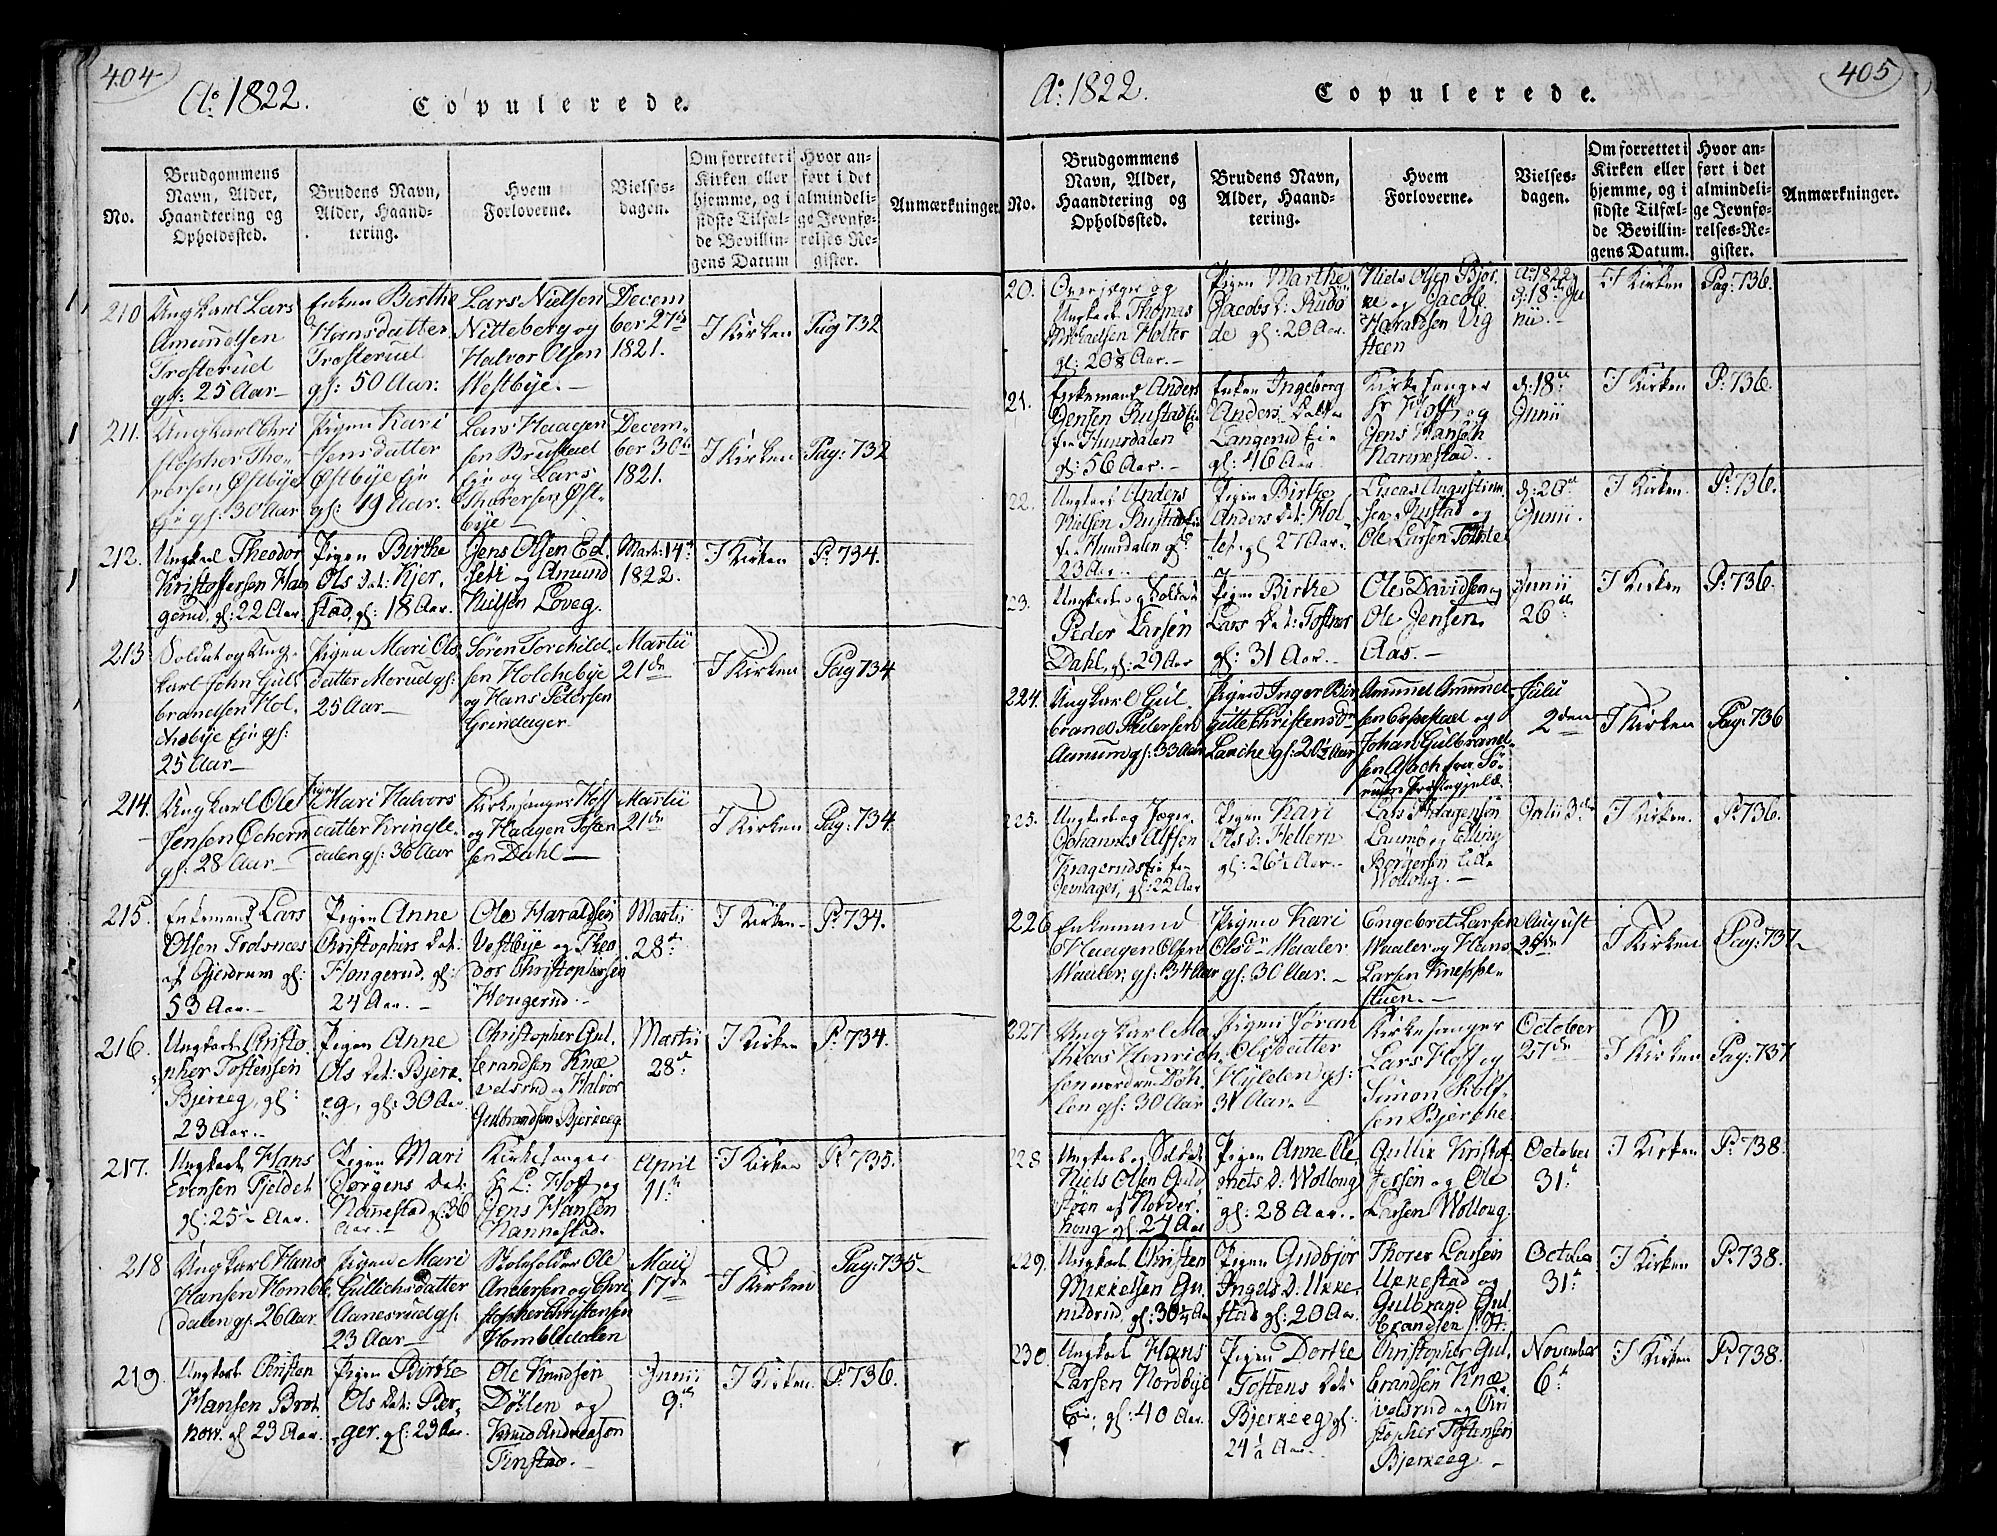 404
Aº 1822.
Copulerede.
No.
Brudgommens
Navn, Alder,
Haandtering og
Opholdssted.
Brudens Navn,
Alder, Haand-
tering.
Hvem
Forloverne.
Vielses-
dagen.
Om forrettet i
Kirken eller
hjemme, og i
sidste Tilfæl-
de Bevillin-
gens Datum
Hvor an-
ført i det
almindeli-
ge Jevnfø-
relses-Re-
gister.
Anmærkninger.
210
Ungkarl Lars
Amundsen
Trosterud
gl: 25 Aar
Enken Berthe
Hansdatter
Trosterud
gl: 50 Aar.
Lars Nielsen
Nitteberg og
Halvor Olsen
Westbye.
Decem
ber 27de
1821.
I Kirken
Pag 732
211.
Ungkarl Chri
stopher Tho-
rersen Østbye
Eje gl: 30 Aar
Pigen Kari
Jensdatter
Østbye Eje
gl: 19 Aar.
Lars Haagen
sen Brustad
Eje og Lars
Thorersen Øst-
bye
Decem-
ber 30te
1821.
I Kirken
Pag: 732
212.
Ungkarl Theodor
Kristoffersen Hau
gerud, gl: 22 Aar
Pigen Birthe
Ols Dat: Kjer-
stad, gl: 18 Aar.
Jens Olsen Ed-
og Amund
Nielsen Loveg.
Marti: 14de
1822.
I Kirken
P: 734.
213
Soldat og Ung-
karl John Gul-
brandsen Hol-
chebye Eje gl:
25 Aar
Pigen Mari Ols
datter Morud gl:
25 Aar
Søren Torchild-
sen Holchebye
og Hans Petersen
Grendager.
Martii
21de
I Kirken
Pag 734
214.
Ungkarl Ole
Jensen Ochorn
gl: 28 Aar
Pigen
Mari Halvors
datter Kringle-
dalen gl: 36 Aar
Kirkesanger Hoff
og Haagen Tosten
sen Dahl
Martii
21de
I Kirken
Pag: 734.
215.
Enkemand Lars
Olsen Trolsnæs
af Gjerdrum gl:
53 Aar.
Pigen Anne
Christophers Dat:
Hongerud, gl:
24 Aar.
Ole Haraldsen
Vestbye og Theo
dor Christophersen
Hougerud.
Martii
28de
I Kirken
P: 734.
216.
Ungkarl Christo-
pher Tostensen
Bjerkeeg, gl:
23 Aar.
Pigen Anne
Ols Dat: Bjerk-
eg, gl: 30 Aar.
Christopher Gul-
brandsen Knæ
velsrud og Halvor
Gulbrandsen Bjerkeeg
Martii
28de
I Kirken
P: 734.
217.
Ungkarl Hans
Evensen Fjeldet
gl: 25 Aar.
Pigen Mari
Jørgens Dat:
Nannestad gl: 36
Aar.
Kirkesanger
Hr L: Hoff og
Jens Hansen
Nannestad.
April
11te
I Kirken
P: 735.
218
Ungkarl Hans
Hansen Homble
dalen gl: 26 Aar.
Pigen Mari
Gullichsdatter
Aanesrud gl:
23 Aar
Skoleholder Ole
Andersen og Chri
stopher Christensen
Hombledalen
Maii
17de
I Kirken
Pag: 735
219.
Ungkarl Christen
Hansen Brot
norr. gl 23 Aar.
Pigen Birthe
Ols Dat: Ber-
ger. gl: 23 Aar
Ole Knudsen
Døhlen og
Knud Andreassen
Finstad.
Junii
9de
I Kirken.
P: 736.
405
Aº 1822.
Copulerede.
No.
Brudgommens
Navn, Alder,
Haandtering og
Opholdssted.
Brudens Navn,
Alder, Haand-
tering.
Hvem
Forloverne.
Vielses-
dagen.
Om forrettet i
Kirken eller
hjemme, og i
sidste Tilfæl-
de Bevillin-
gens Datum.
Hvor an-
ført i det
almindeli-
ge Jevnfø-
relses-Re-
gister.
Anmærkninger.
20.
Overjæger og
Ungkarl Thomas
Michaelsen Holter
gl: 20 Aar.
Pigen Marthe
Jacobs D: Rudø
de gl: 20 Aar.
Niels Olsen Bjør
ke og Jacob
Haraldsen Vig
steen
Aº 1822
d: 18de Ju
nii.
I Kirken
Pag: 736.
21.
Enkemand Anders
Jensen Rustad
fra Hurdalen
gl: 56 Aar.
Enken Ingeborg
Anders Datter
Langerud Eje
gl: 46 Aar
Kirkesanger
Hr Hoff og
Jens Hansen
Nannestad.
d: 18de
Junii
I Kirken
P: 736.
22.
Ungkarl Anders
Nielsen Rustad
fra Hurdalen gl:
23 Aar.
Pigen Birthe
Anders Dat: Hol-
ter gl 27 Aar.
Lucas Augustinu
sen Rustad og
Ole Larsen Tofte
d: 20de
Junii.
I Kirken.
P: 736.
23.
Ungkarl og Soldat
Peder Larsen
Dahl, gl: 29 Aar
Pigen Birthe
Lars Dat: Tostner
gl: 31 Aar.
Ole Davidsen og
Ole Jensen
Aas.
Junii
26de
I Kirken
P: 736.
224.
Ungkarl Gul-
brand Pedersen
Aamum gl: 33 Aar
Pigen Inger Bir
gitte Christens Dr
Laache gl: 20½ Aar
Amund Amund-
sen Eppestad og
Johan Gulbrand-
sen Asach fra Sø-
rum Præstegjæld.
Julii
2den
I Kirken
Pag: 736
225.
Ungkarl og Jæger
Johannes Alfsen
Kragerud Eje fra
Jevnager, gl: 22 Aar
Pigen Kari
Ols D: Hellern
gl: 26½ Aar.
Lars Haagensen
Laumø og Elling
Borgersen
Wollong.
Julii 3de
I Kirken.
P: 736.
226
Enkemand
Haagen Olsen
Waaler, gl: 34 Aar
Pigen Kari
Olsdr Waaler
gl: 30 Aar.
Engebret Larsen
Waaler og Hans
Larsen Kneppe-
stuen.
August
25de
I Kirken
Pag: 737
227
Ungkarl Ma-
thias Henrich
sen nordre Døh-
len gl: 30 Aar
Pigen Søran
Olsdatter
Hylden gl:
31 Aar.
Kirkesanger
Lars Hoff og
Simon Rolf-
sen Bjerche
October
27de
I Kirken
Pag: 737
228
Ungkarl og Soldat
Niels Olsen Guld
støen af Norder-
houg gl. 24 Aar
Pigen Anne Ole
mets D: Wollong
gl: 28 Aar.
Gullix Kristof-
fersen og Ole
Larsen Wollong.
October
31te
I Kirken
P: 738.
229.
Ungkarl Christen
Mikkelsen Gu-
nildrud, gl: 30¼ Aar
Pigen Gudbjør
Ingels D: Ukke-
stad gl: 20 Aar.
Thorer Larsen
Ukkestad og
Gulbrand Gul-
brandsen
Octobr
31te
I Kirken
P: 738.
230.
Ungkarl Hans
Larsen Nordbye
Eie, gl: 40 Aar.
Pigen Dorthe
Tostens Dat:
Bjerkeeg gl:
24½ Aar.
Christopher Gul-
brandsen Knæ
velsrud og Chri
stopher Tostensen
Bjerkeeg
November
6te
I Kirken
P: 738.